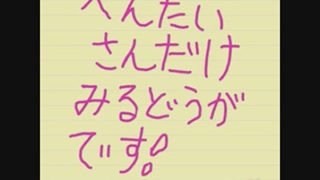 へんたい
さんだけ
みるどうが
です!